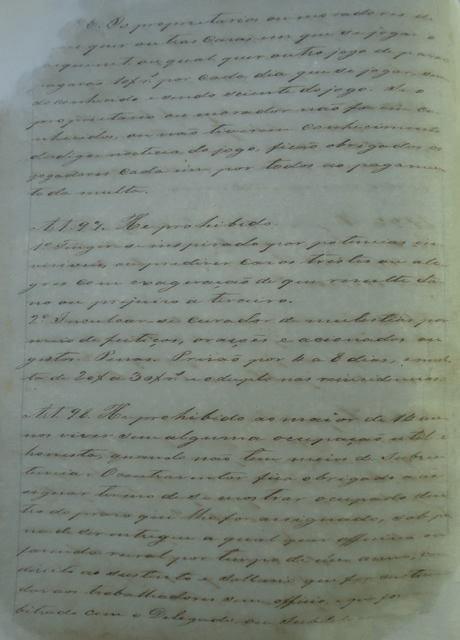 6. Os proprietarios ou moradores de
qual quer outras casas em que se jogar o
ou qual quer outro jogo de parar
pagarão 10$rs por cada dia que se jogar, 
sendo sciente do jogo. Se o
proprietario ou morador não forem co
nhecidos, ou não tiverem conhecimento
do jogo, ficão obrigados os
jogadores cada um por todos ao pagamen
to da multa.
Art. 97. He prohibido
1º Fingir-se inspirado por potencias in
visiveis, ou predizer casos tristes ou ale
gres com exageração de que resulte da
no ou prejuizo a terceiro.
2º Inculcar-se curador de molestias por
meio de feitiços, orações e acionados ou
gestos. Penas: Prisão por 4 a 8 dias, e mul
ta de 20$ a 30$rs e o duplo nas reincidencias.
He prohibido ao maior de
nos viver sem alguma occupação util e
honesta, quando não tem meios de subsis
tencia: O contraventor fica obrigado a as
signar termo de se mostrar occupado den
tro do praso que lhe for assignado, sob pe
na de ser entregue a qual quer officina ou
fazenda rural por tempo de um anno, com
direito ao sustento e sallario que for 
aos trabalhadores sem officio, e que for
bitrado com o Delegado ou